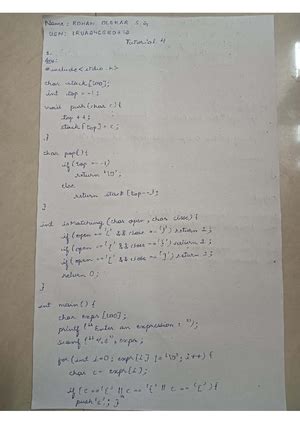 Name : ROHAN
USN:
Tutorial 4
1.
#include <stdio.h>
char stack[100];
int top = -1;
void push(char c){
top ++;
stack[top] = c;
}
char pop(){
if(top == -1)
return '\0';
else
return stack[top--];
}
int isMatching (char open, char close) {
if(open == '(' && close == ')') return 1;
if(open == '{' && close == '}') return 1;
if(open == '[' && close == ']') return 1;
return 0;
}
int main() {
char expr[100];
printf("Enter an expression : ");
scanf("%s", expr);
for (int i=0; expr[i] != '\0'; i++) {
char c = expr[i];
if (c == '(' || c == '{' || c == '[') {
push